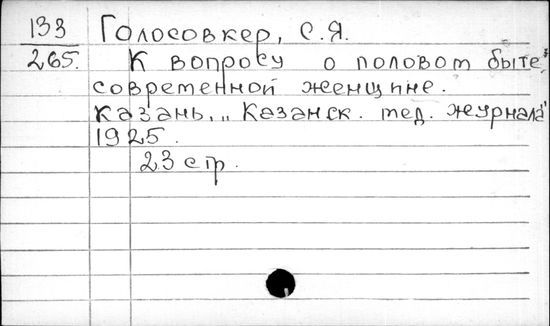 133 Голосовкер, С.Я.
265. К вопросу о половом быте
современной женщине.
Казань, „Казанск. мед. журнала"
1925.
23 стр.